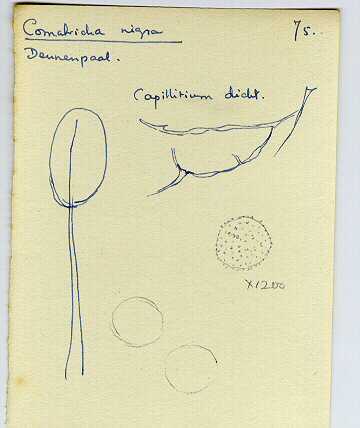 Comatricha nigra
75..
Dennenpaal.
Capillitium dicht.
X1200